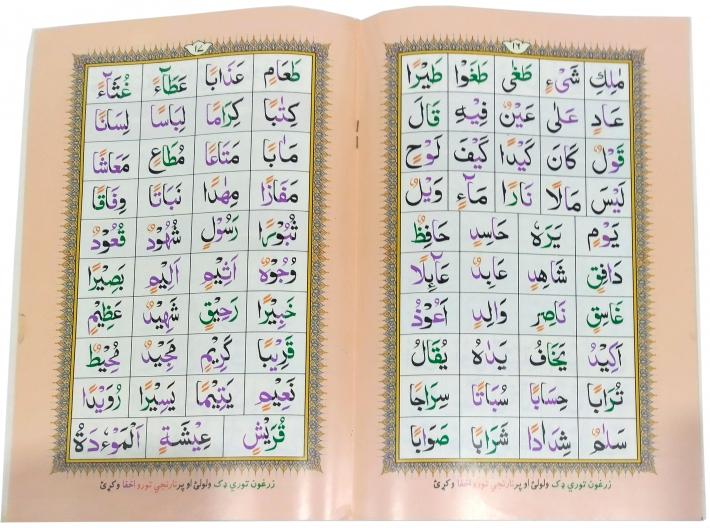 ١٦
مٰلِكِ شَیْءٍ طَغٰی طَغَوْا طَیْرًا
عَادٍ عَلٰی عَیْنٌ فِیْهِ قَالَ
قَوْلٌ كَانَ كَیْدًا كَیْفَ لَوْحٍ
لَیْسَ مَالًا نَارًا مَآءٍ وَیْلٌ
یَوْمٍ یَرَهٗ حَاسِدٍ حَافِظٌ
دَافِقٍ شَاهِدٍ عَابِدٌ عَآئِلًا
غَاسِقٍ نَاصِرٍ وَالِدٍ اَعُوْذُ
اَكِیْدُ یَخَافُ یَدٰهُ یُقَالُ
تُرَابًا حِسَابًا سُبَاتًا سِرَاجًا
سَلٰمٌ شِدَادًا شَرَابًا صَوَابًا
زرغون توري ډک ولولئ او پر نارنجي تورو اخفا وکړئ
١٧
طَعَامٍ عَذَابًا عَطَآءً غُثَآءً
كِتٰبًا كِرَامًا لِبَاسًا لِسَانًا
مَاٰبًا مَتَاعًا مُطَاعٍ مَعَاشًا
مَفَازًا مِهٰدًا نَبَاتًا وِفَاقًا
ثُبُوْرًا رَسُوْلٍ شُهُوْدٌ قُعُوْدٌ
وُجُوْهٌ اَثِیْمٍ اَلِیْمٍ بَصِیْرًا
خَبِیْرًا رَحِیْقٍ شَهِیْدٌ عَظِیْمٍ
قَرِیْبًا كَرِیْمٍ مَّجِیْدٌ مُحِیْطٌ
نَعِیْمٍ یَتِیْمًا یَسِیْرًا رُوَیْدًا
قُرَیْشٍ عِیْشَةٍ اَلْمَوْءٗدَةُ
زرغون توري ډک ولولئ او پر نارنجي تورو اخفا وکړئ